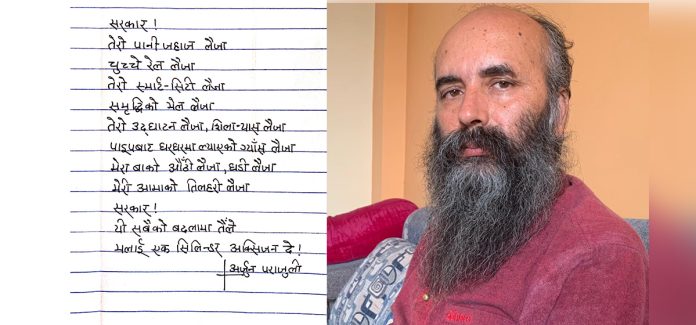 सरकार !
तेरो पानी जहाज लैजा
चुच्चे रेल लैजा
तेरो स्मार्ट-सिटी लैजा
समृद्धिको मेल लैजा
तेरो उद्‌घाटन लैजा, शिला-यास लैजा
पाइपबाट घरघरमा ल्याएको ग्याँस लैजा
मेरा बाको औँठी लैजा, घडी लैजा
मेरी आमाको तिलहरी लैजा
सरकार !
यी सबैको बदलामा तैँले
मलाई एक सिलिन्डर अक्सिजन दे !
अर्जुन पराजुली